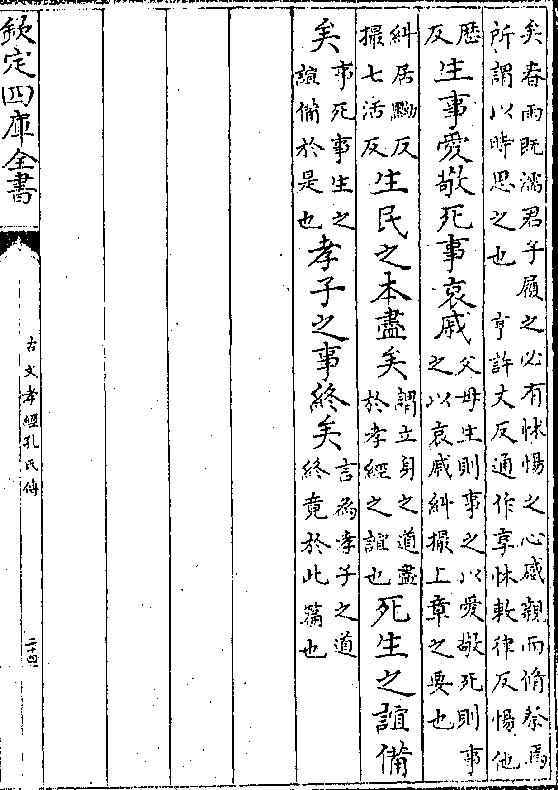 矣春雨既濡君子履之必有怵惕之心感親而脩祭焉
所謂以時思之也　亨許丈反通作享怵敕律反惕他
歴
反
生事愛敬死事哀戚
父母生則事之以愛敬死則事
之以哀戚糾撮上章之要也
糾居黝反
撮七活反
生民之本盡矣
謂立身之道盡
於孝經之誼也
死生之誼備
矣
事死事生之
誼備於是也
孝子之事終矣
言為孝子之道
終竟於此篇也
欽定四庫全書
古文孝經孔氏傳
二十四